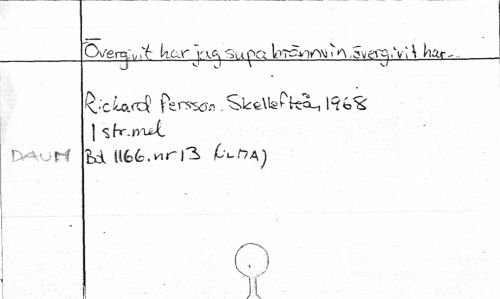 Övergivit har jag supa brännvin, övergivit har...
Rickard Persson. Skellefteå, 1968
1 str. mel
DAUM Bd 1166. nr 13 (ULMA)